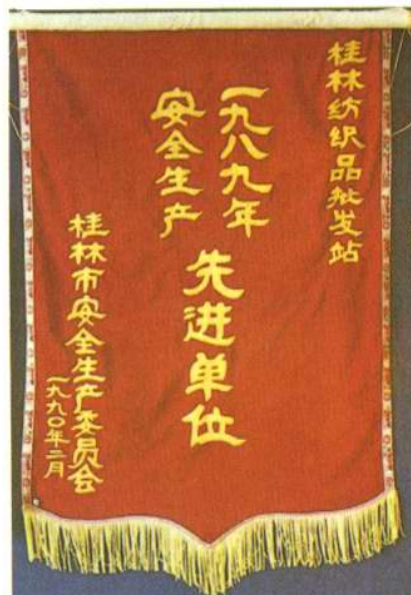 桂林纺织品批发站
一九八九年
安全生产
先进单位
桂林市安全生产委员会
一九九〇年二月